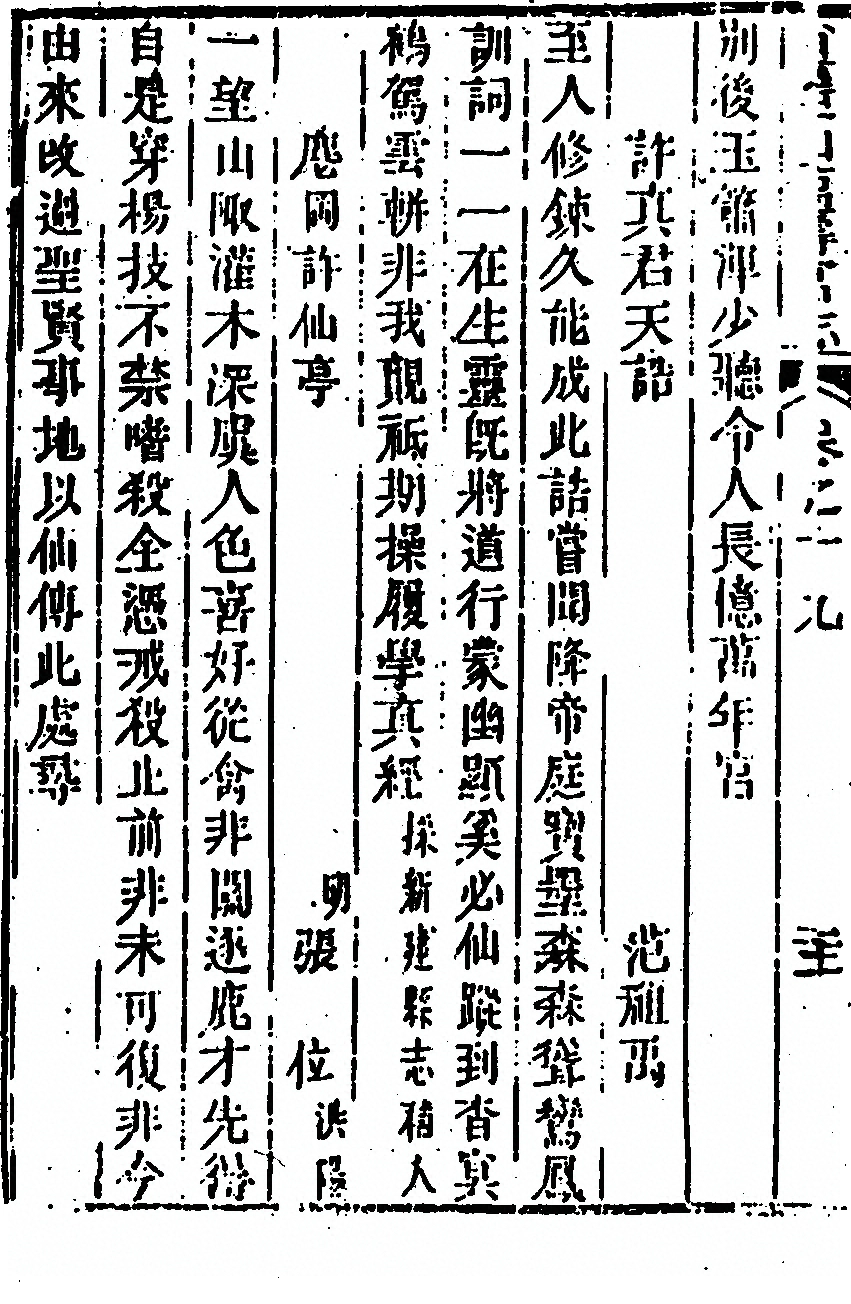 別後玉簫渾少聽令人長億萬年宮
許真君天誥　范雍禹
至人修鍊久能成此誥嘗聞降帝庭寶墨森森聳鸞鳳
訓詞一一在生靈既將道行蒙幽顯奚必仙蹤到杳冥
鶴駕雲輧非我覿祗期操履學真經採新建縣志補入
鹿岡許仙亭　明張位洪陽
一望山陬灌木深麑人色喜好從禽非關逐鹿才先得
自是穿楊技不禁嗜殺全憑戒殺止前非未可復非今
由來改過聖賢事地以仙傳此處尋
卷之二九